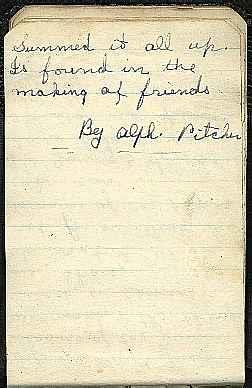 Summed it all up.
Is found in the
making of friends
By Alph. Pitcher